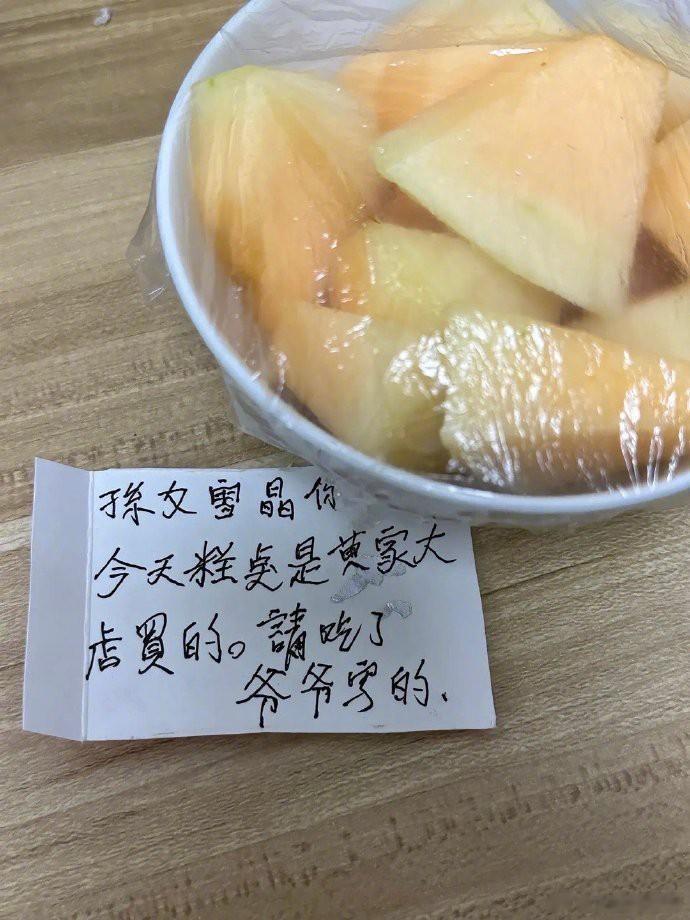 孫女雪晶你
今天糕奌是黄家大
店買的。請吃了
爷爷写的.